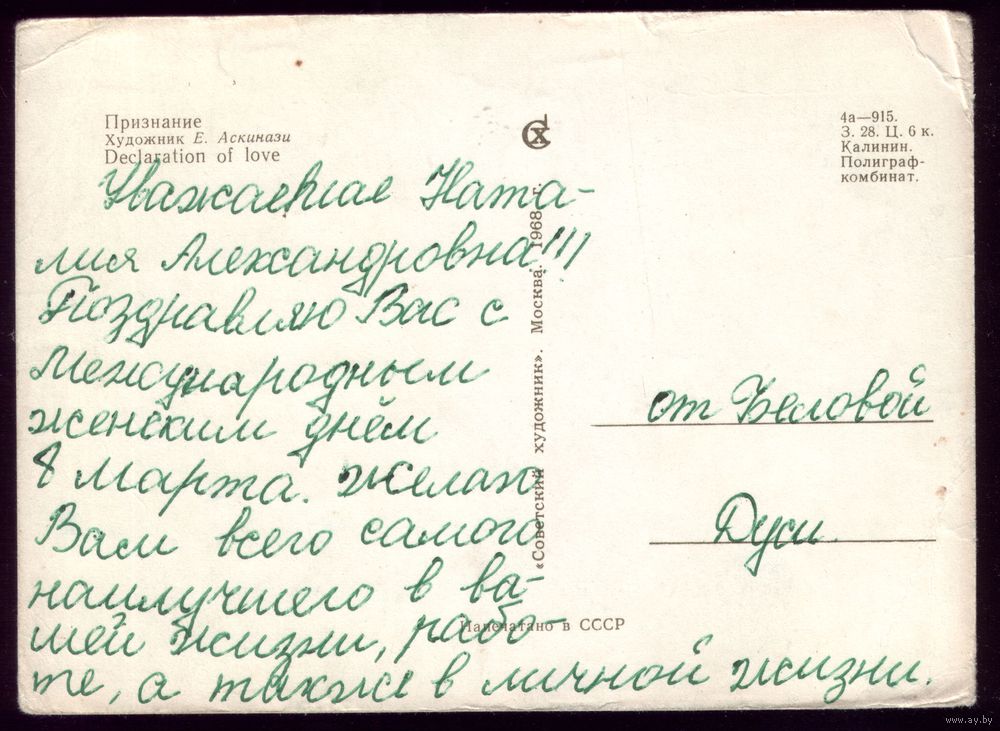 Признание
Художник Е. Аскинази
Declaration of love
СХ
4а—915.
З. 28. Ц. 6 к.
Калинин.
Полиграф-
комбинат.
Уважаемая Ната-
лия Александровна!!!
Поздравляю Вас с
Международным
женским днём
8 марта. желаю
Вам всего самого
наилучшего в ва-
шей жизни, рабо-
те, а также в личной жизни.
«Советский художник». Москва. 1968 г.
от Беловой
Дуси.
Напечатано в СССР
www.ay.by